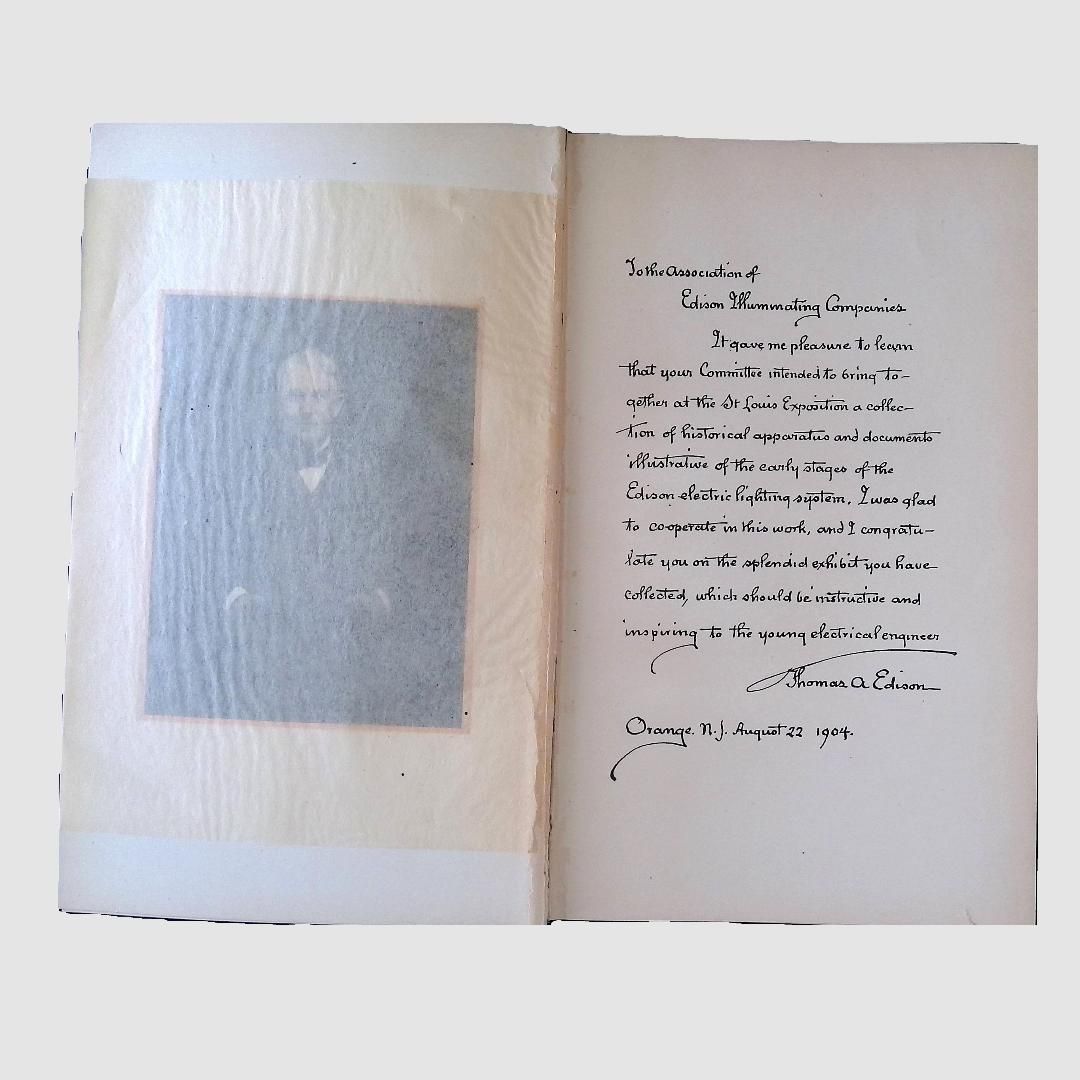 To the Association of
Edison Illuminating Companies
It gave me pleasure to learn
that your Committee intended to bring to-
gether at the St Louis Exposition a collec-
tion of historical apparatus and documents
illustrative of the early stages of the
Edison electric lighting system. I was glad
to co-operate in this work, and I congratu-
late you on the splendid exhibit you have
collected, which should be instructive and
inspiring to the young electrical engineer
Thomas A Edison
Orange. N.J. August 22 1904.